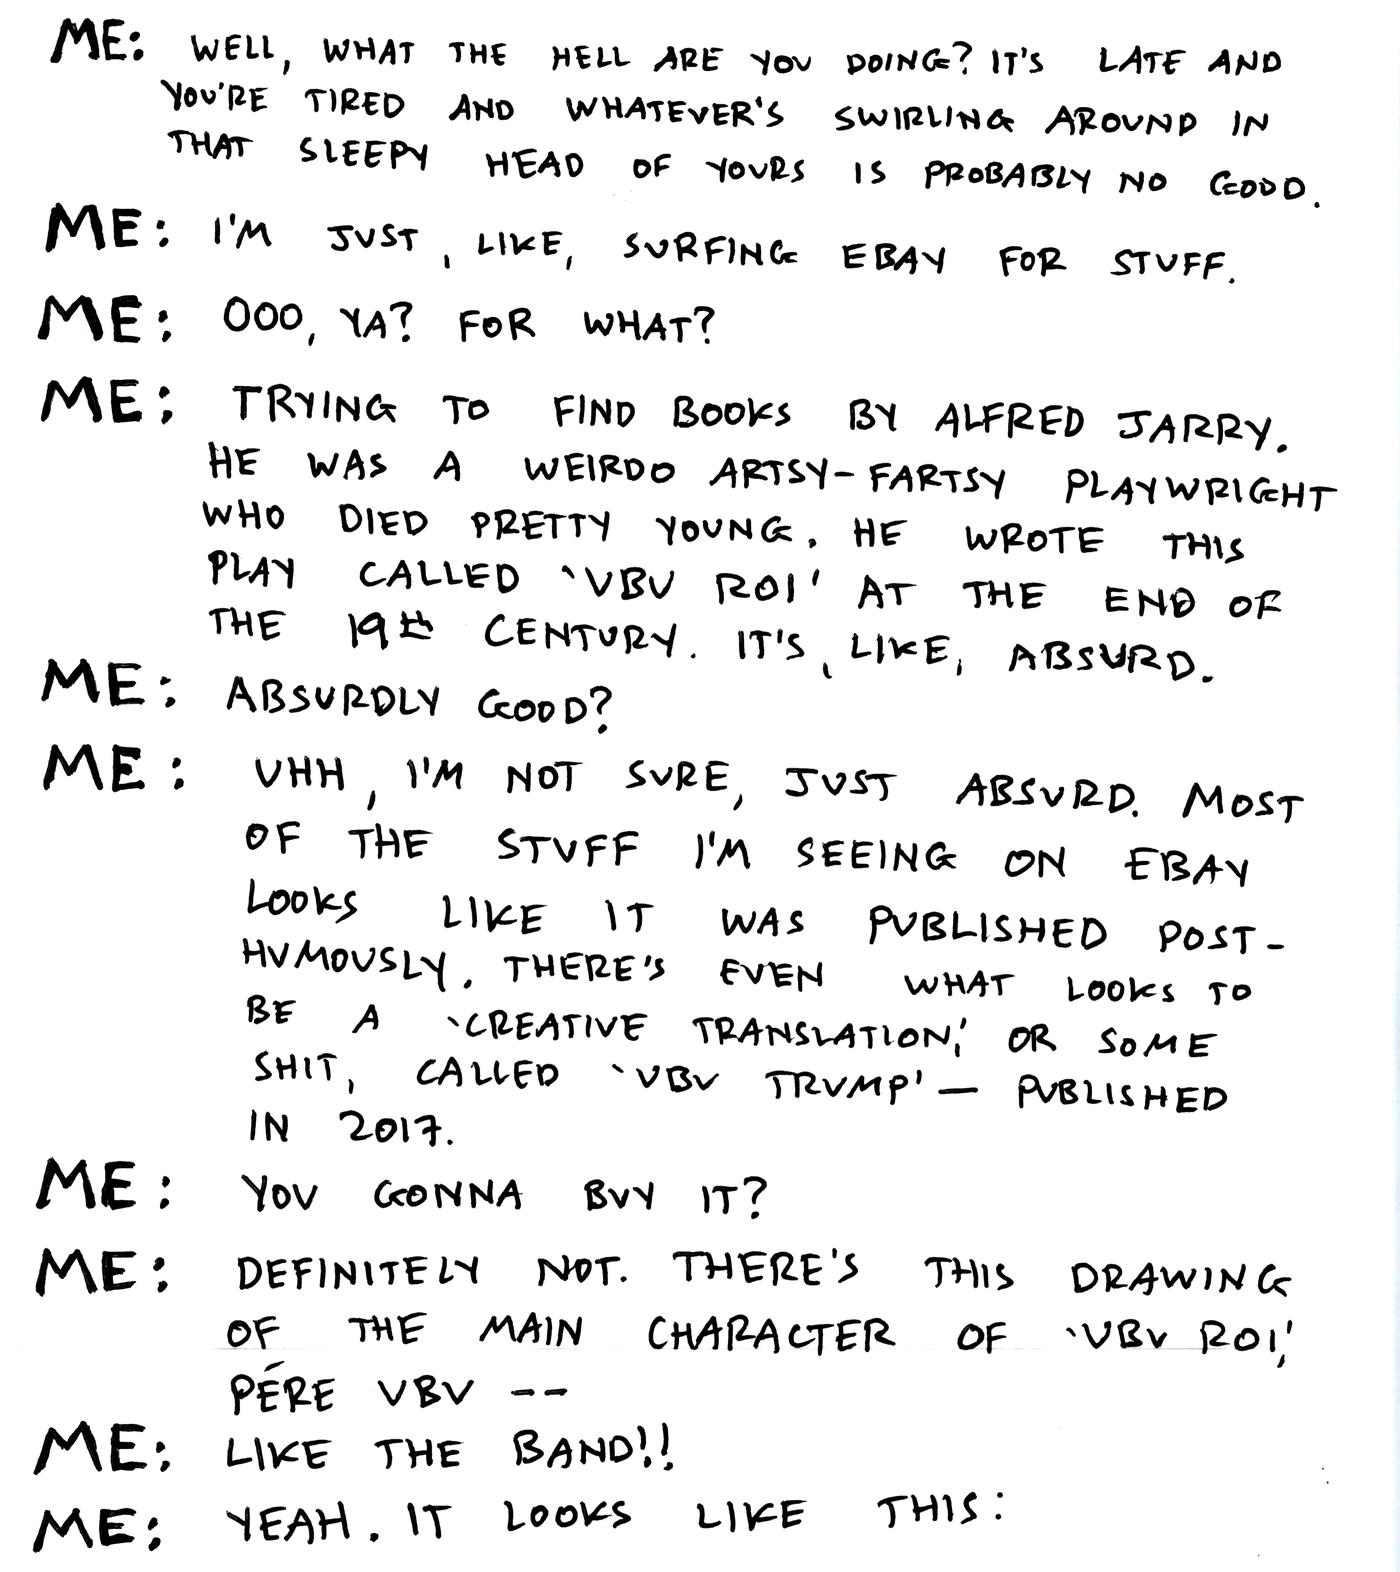 ME: WELL, WHAT THE HELL ARE YOU DOING? IT'S LATE AND
YOU'RE TIRED AND WHATEVER'S SWIRLING AROUND IN
THAT SLEEPY HEAD OF YOURS IS PROBABLY NO GOOD.
ME: I'M JUST, LIKE, SURFING EBAY FOR STUFF.
ME: OOO, YA? FOR WHAT?
ME: TRYING TO FIND BOOKS BY ALFRED JARRY.
HE WAS A WEIRDO ARTSY-FARTSY PLAYWRIGHT
WHO DIED PRETTY YOUNG. HE WROTE THIS
PLAY CALLED 'UBU ROI' AT THE END OF
THE 19th CENTURY. IT'S, LIKE, ABSURD.
ME: ABSURDLY GOOD?
ME: UHH, I'M NOT SURE, JUST ABSURD. MOST
OF THE STUFF I'M SEEING ON EBAY
LOOKS LIKE IT WAS PUBLISHED POST-
HUMOUSLY. THERE'S EVEN WHAT LOOKS TO
BE A 'CREATIVE TRANSLATION,' OR SOME
SHIT, CALLED 'UBU TRUMP' — PUBLISHED
IN 2017.
ME: YOU GONNA BUY IT?
ME: DEFINITELY NOT. THERE'S THIS DRAWING
OF THE MAIN CHARACTER OF 'UBU ROI,'
PÉRE UBU --
ME: LIKE THE BAND!!
ME: YEAH. IT LOOKS LIKE THIS: